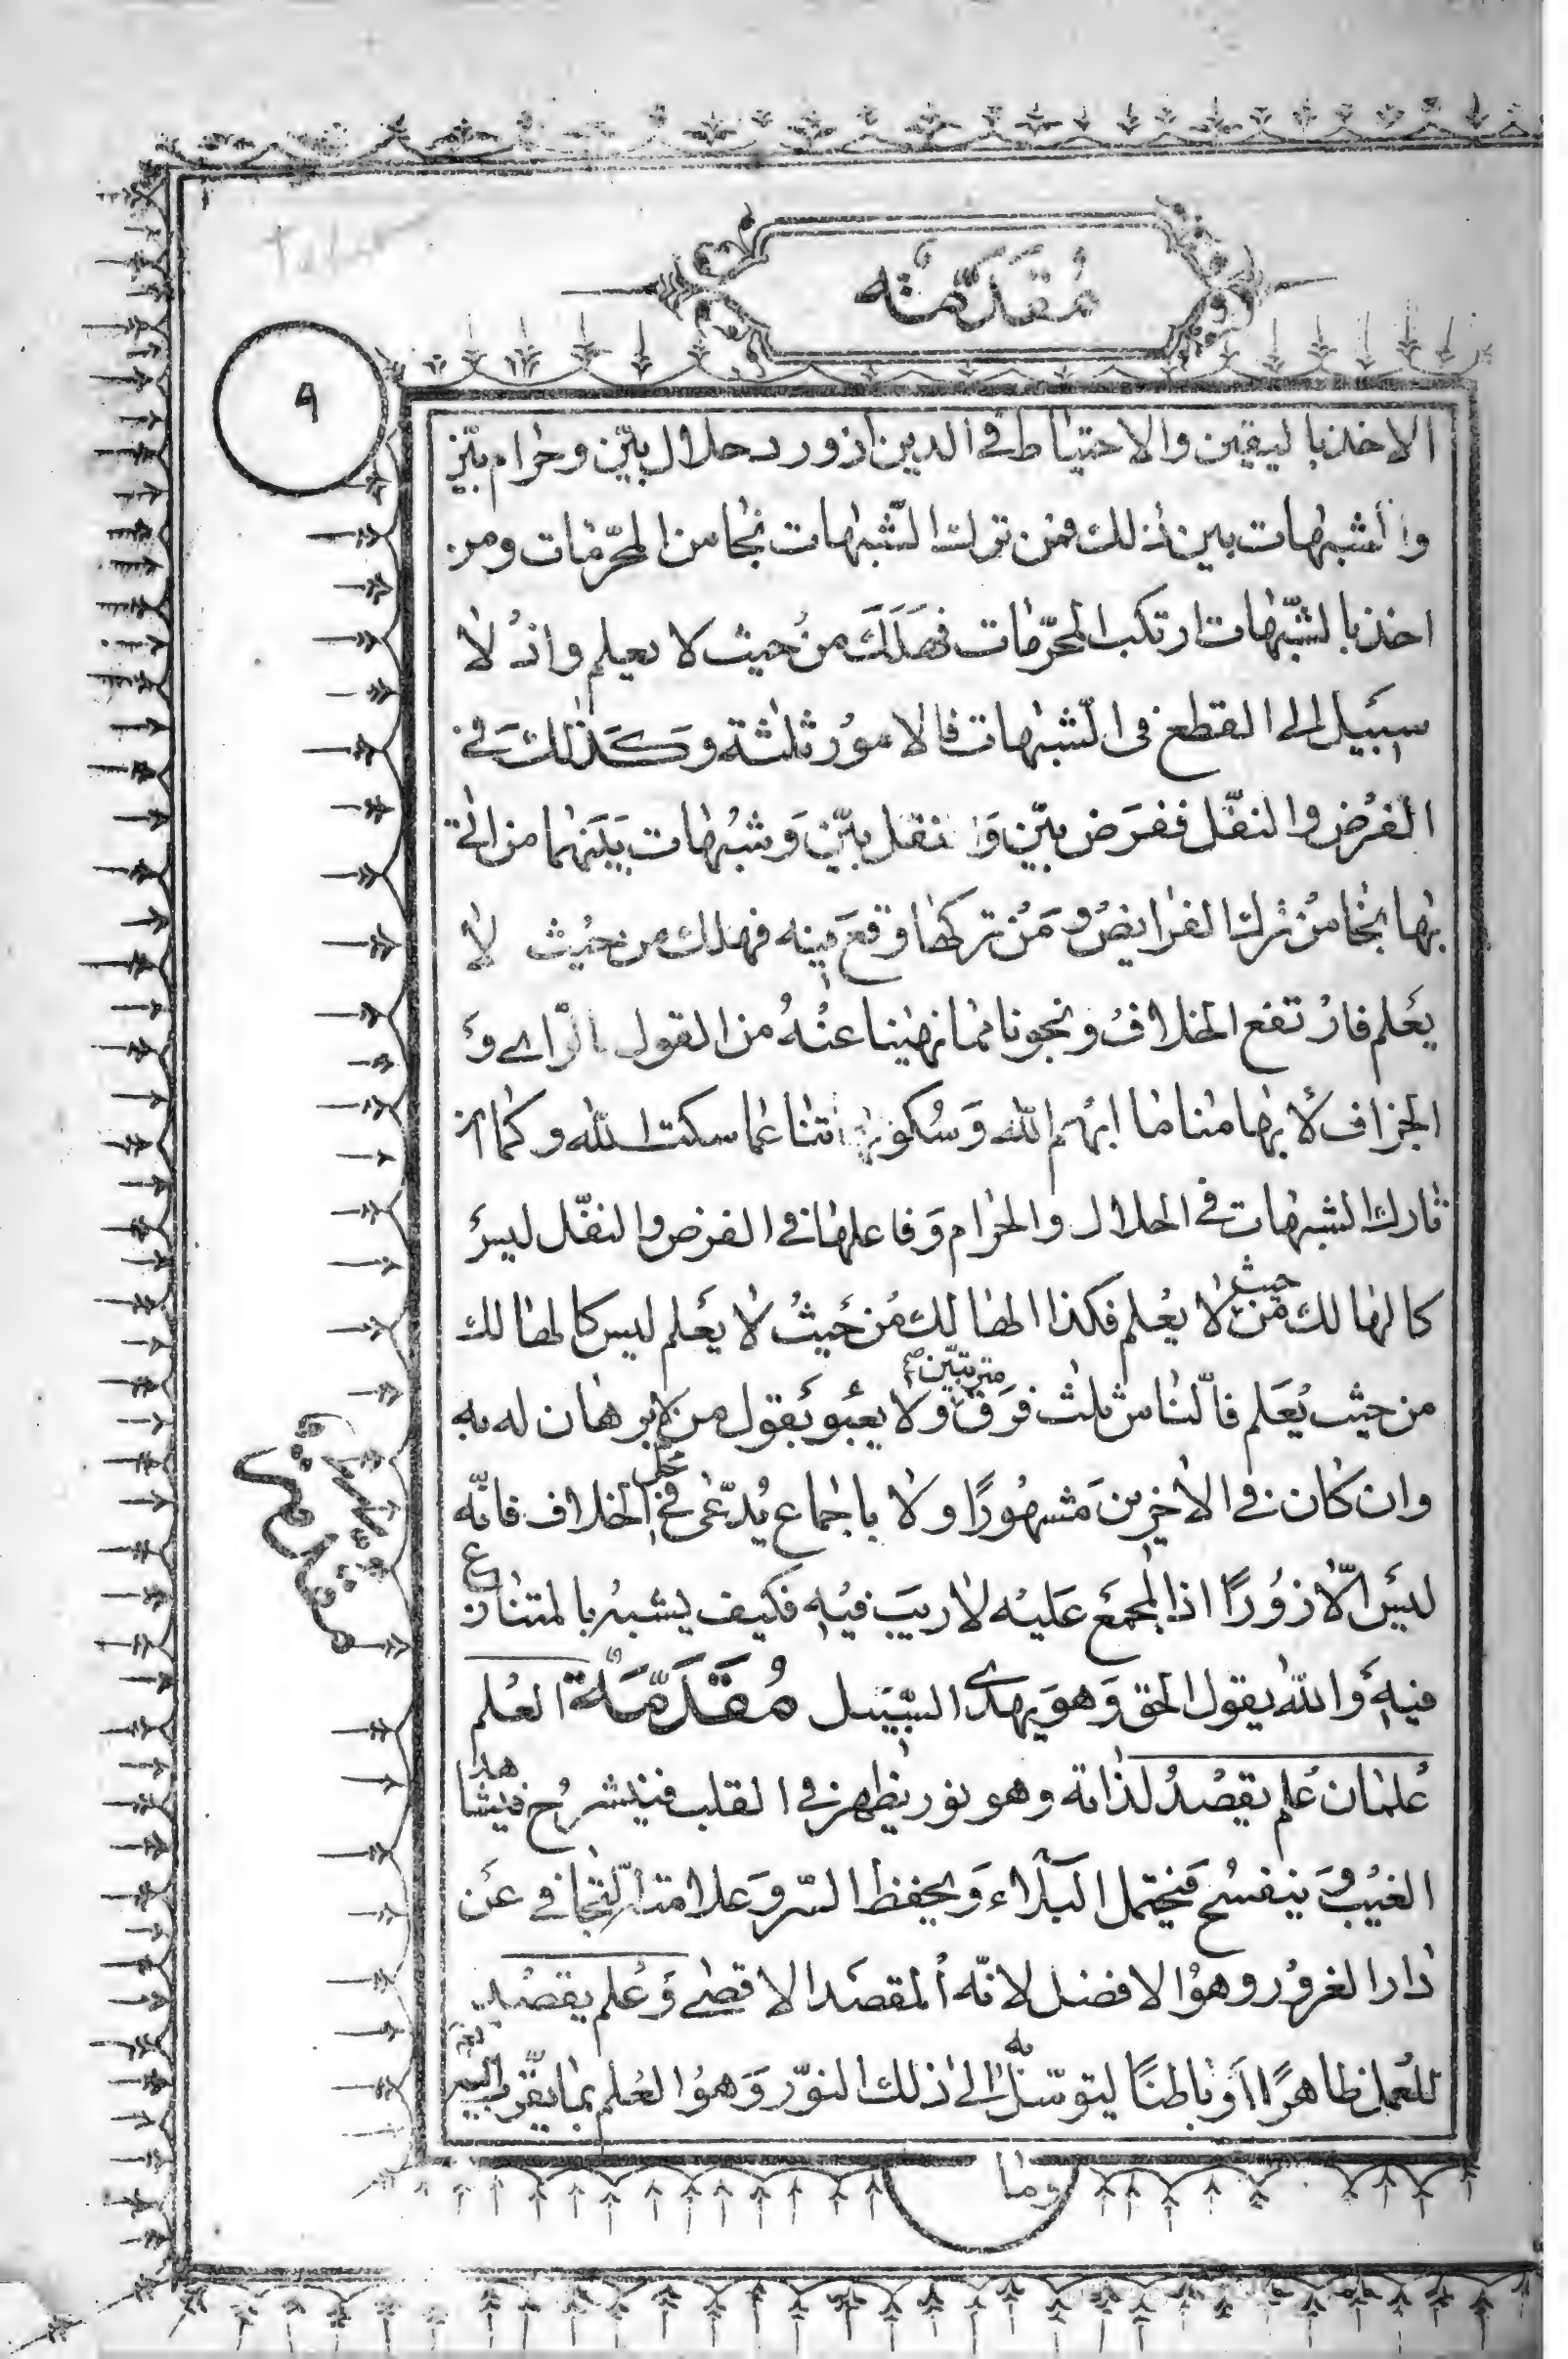 مُقدّمته
٩
الاخذ باليقين والاحتياط في الدين اذ ورد حلال بيّن وحرام بيّن
وشبهات بين ذلك فمن ترك الشّبهات نجا من المحرّمات ومن
اخذ بالشّبهات ارتكب المحرّمات فهَلَكَ من حيث لا يعلم واذ لا
سبيل الى القطع في الشّبهات فالامور ثلثة وكذلك في
الفرض والنفل ففرض بيّن وَ نفل بيّن وَشبُهات بَينَهما من اتى
بها نجا من ترك الفرايض ومَن تركها وقع فيه فهلك من حيث لا
يعلم فارتفع الخلاف ونجونا مما نهينا عنهُ من القول بالرّاى وَ
الجزاف لابهامنا ما ابهم الله وَسُكوتنا عما سكت الله وكما انّ
تارك الشبهات في الحلال والحرام وَفاعلها في الفرض والنفل ليس
كالهالك من حيث لا يعلم فكذا الهالك من حيثُ لا يعلم ليس كالهالك
من حيث يُعلم فالنّاس ثلث فرق مترتبين ولا يعبؤ بقول من لا برهان له به
وان كان في الاخرين مَشهُورًا ولا باجماع يُدّعى في محل الخلاف فانّه
ليسَ الّا زوُرًا اذ المجمع عَليه لا ريبَ فيه فكيف يشبه بالمتنازع
فيه وَالله يقول الحق وَهوَ يهدى السّبيل مُقدّمَة العلم
علمان علم يقصد لذاته وهو نور يظهر في القلب فينشرح فيشاهد
الغيب وَينفسح فيحتمل البلاء وَيحفظ السّر وَعلامته التّجافي عن
دار الغرور وهو الافضل لانّه المقصد الاقصى وَعلم يقصد
للعمل ظاهرًا اَو باطنًا ليتوسّل به الى ذلك النوّر وَهوُ العلم بما يقرّب
وما